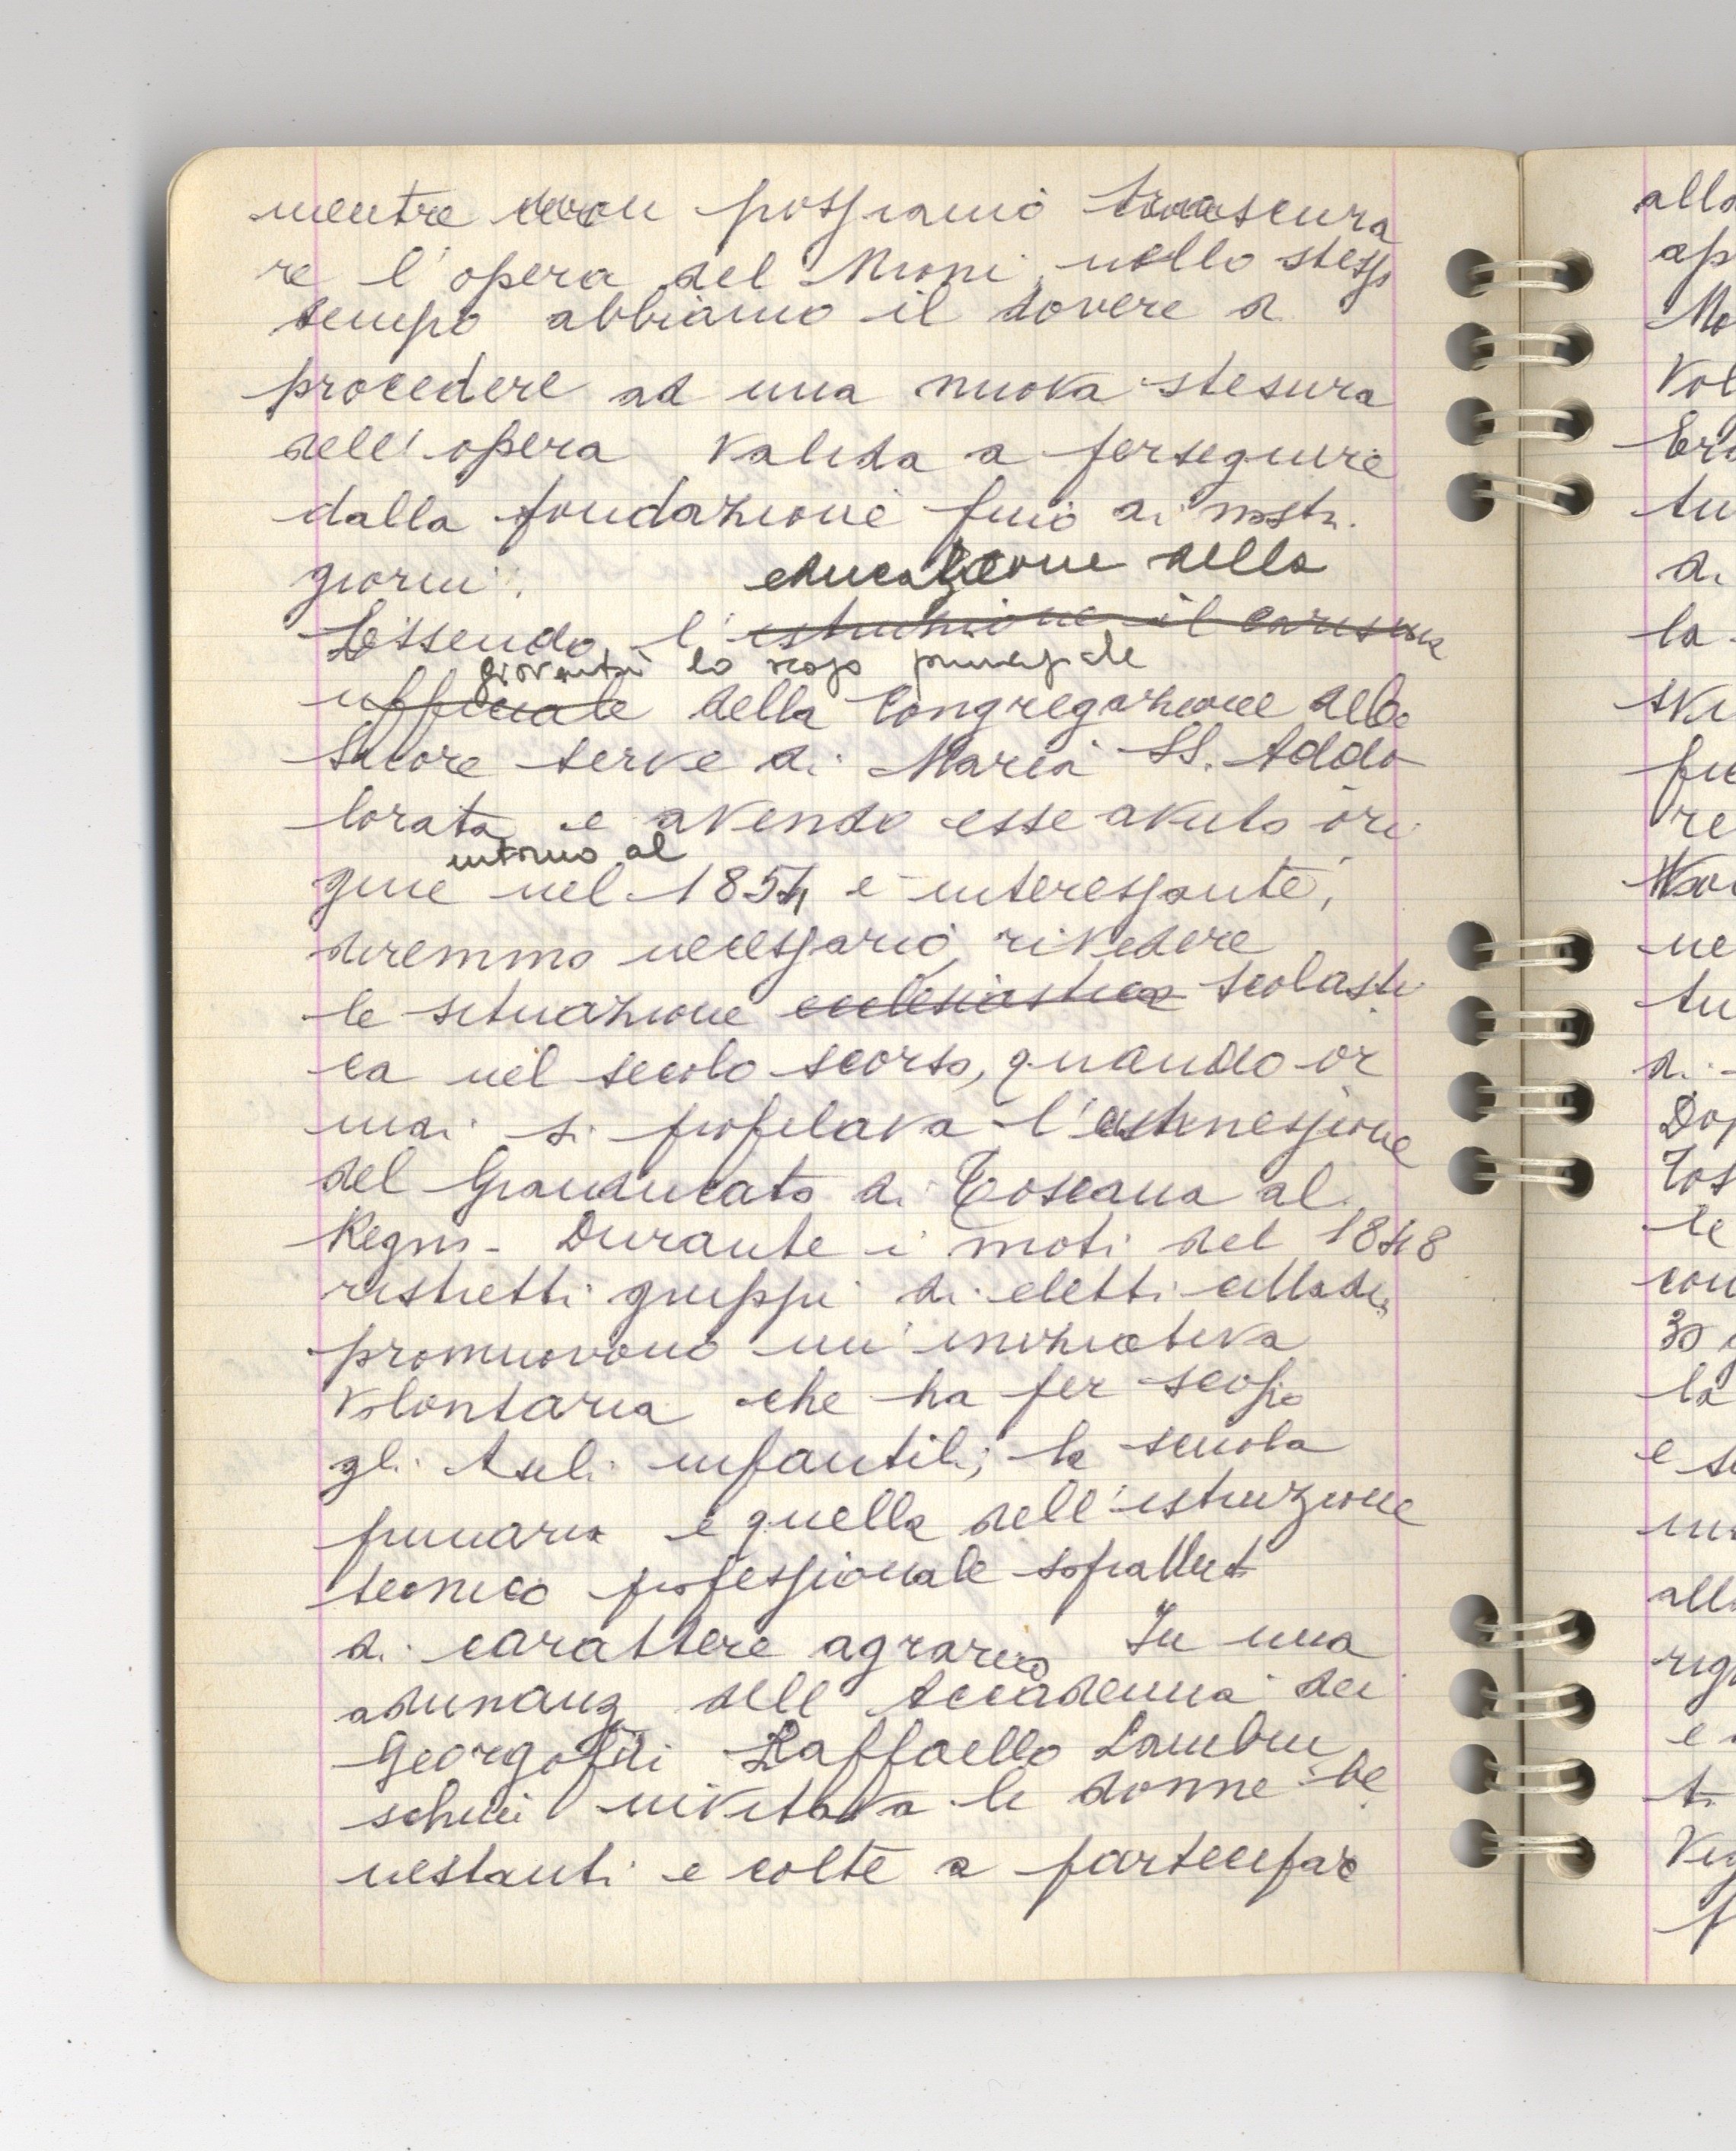 mentre non possiamo trascura
re l'opera del Mioni, nello stesso
tempo abbiamo il dovere di
procedere ad una nuova stesura
dell'opera valida a perseguire
dalla fondazione fino ai nostri
giorni.
educazione della
Essendo l'istruzione il carisma
gioventù lo scopo principale
ufficiale della Congregazione delle
Suore serve di Maria SS. Addo
lorata e avendo esse avuto ori
intorno al
gine nel 1854 è interessante,
diremmo necessario, rivedere
la situazione ecclesiastica scolasti
ca nel secolo scorso, quando or
mai si profilava l'annessione
del Granducato di Toscana al
Regno - Durante i moti del 1848
ristretti gruppi di eletti cittadini
promuovono un'iniziativa
volontaria che ha per scopo
gli Asili infantili, la scuola
primaria e quella dell'istruzione
tecnico professionale soprattutto
di carattere agrario. In una
adunanza dell'Accademia dei
Georgofili Raffaello Lambru
schini invitava le donne be
nestanti e colte a partecipare
alla
ap
Mo
Vol
Ero
tu
di
la
fu
re
ne
tu
di
Dop
Tos
le
con
30
la
e s
all
rig
e
ti